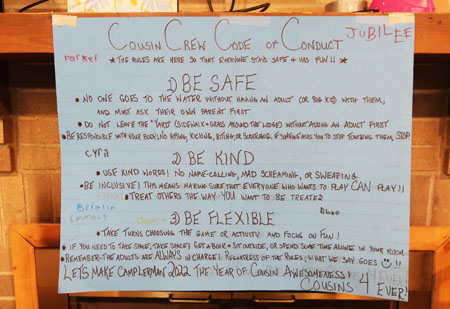 COUSIN CREW CODE OF CONDUCT
JUBILEE
Parker
★ THE RULES ARE HERE SO THAT EVERYONE STAYS SAFE + HAS FUN!! ★
1) BE SAFE
• NO ONE GOES TO THE WATER WITHOUT HAVING AN ADULT (OR BIG KID) WITH THEM,
AND MUST ASK THEIR OWN PARENT FIRST
• DO NOT LEAVE THE "YARD" (SIDEWALK + GRASS AROUND THE LODGE) WITHOUT ASKING AN ADULT FIRST
• BE RESPONSIBLE WITH YOUR BODY. NO HITTING, KICKING, BITING, OR SCRATCHING. IF SOMEONE ASKS YOU TO STOP TOUCHING THEM, STOP.
Cyril
2) BE KIND
• USE KIND WORDS! NO NAME-CALLING, MAD SCREAMING, OR SWEARING
• BE INCLUSIVE! THIS MEANS MAKING SURE THAT EVERYONE WHO WANTS TO PLAY CAN PLAY!!
• TREAT OTHERS THE WAY YOU WANT TO BE TREATED
Brielle
Emmett
3) BE FLEXIBLE
• TAKE TURNS CHOOSING THE GAME OR ACTIVITY AND FOCUS ON FUN!
• IF YOU NEED TO TAKE SPACE, TAKE SPACE! GET A BOOK + SIT OUTSIDE, OR SPEND SOME TIME ALONE IN YOUR ROOM
• REMEMBER-THE ADULTS ARE ALWAYS IN CHARGE! REGARDLESS OF THE RULES, WHAT WE SAY GOES !!
LETS MAKE CAMPLERMAN 2022 THE YEAR OF COUSIN AWESOMENESS!
COUSINS 4 EVER!